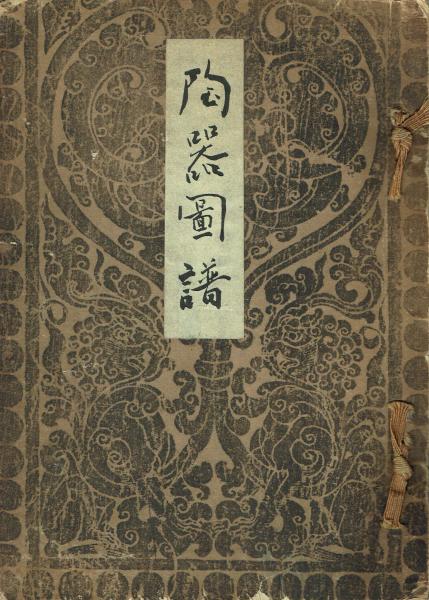 陶器圖譜